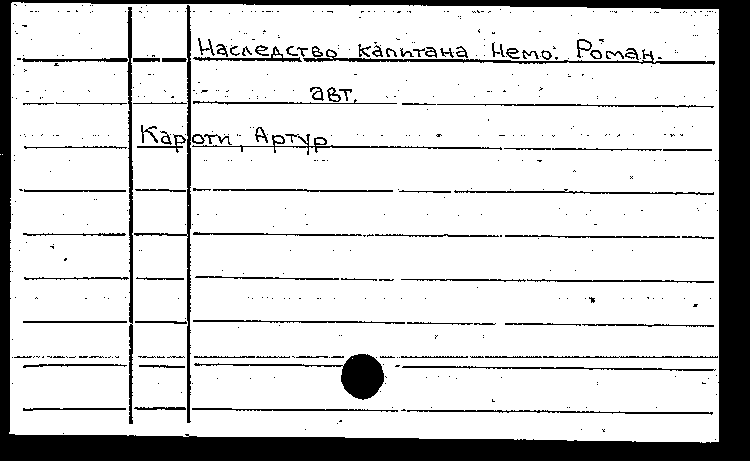 Наследство капитана Немо. Роман.
авт.
Кароти, Артур